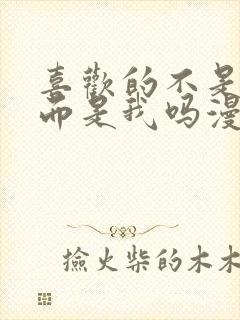 喜歡的不是
而是我吗漫
撿火柴的木木